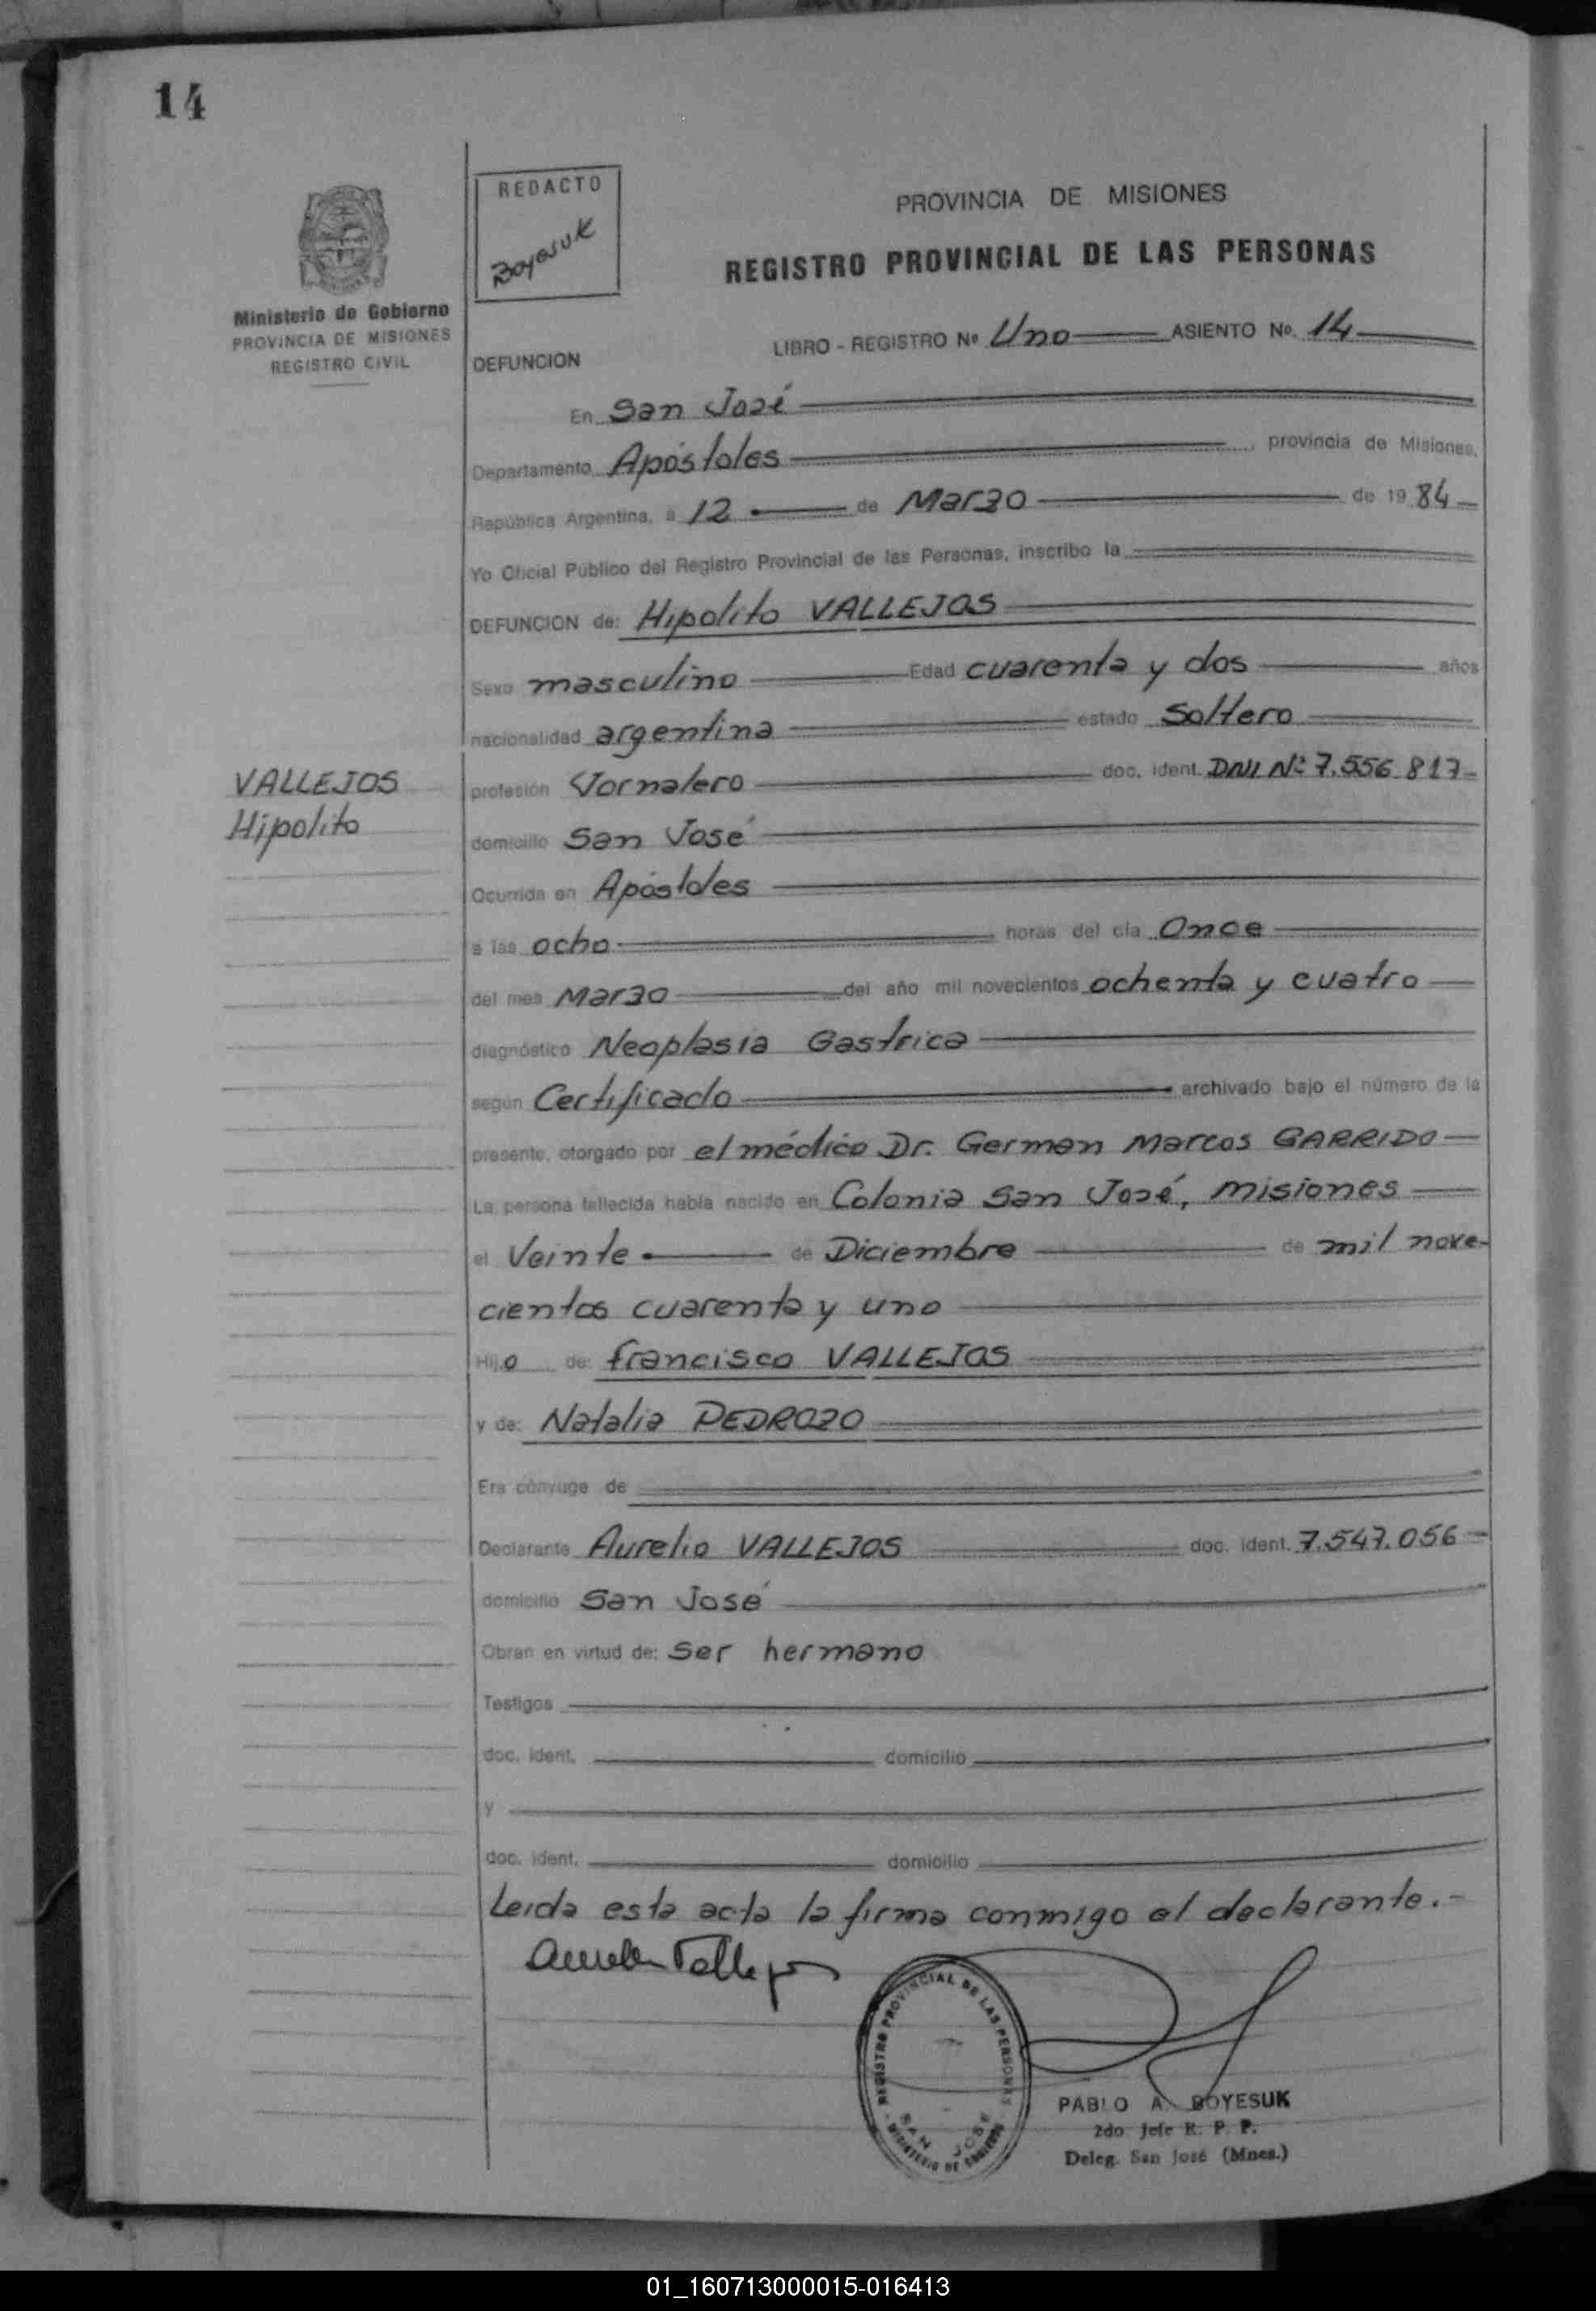 14
REDACTO
Boyesuk
Ministerio de Gobierno
PROVINCIA DE MISIONES
REGISTRO CIVIL
PROVINCIA DE MISIONES
REGISTRO PROVINCIAL DE LAS PERSONAS
LIBRO - REGISTRO Nº Uno ASIENTO Nº. 14
DEFUNCION
En San José
Departamento Apóstoles, provincia de Misiones,
República Argentina, a 12 de Marzo de 1984
Yo Oficial Público del Registro Provincial de las Personas, inscribo la
DEFUNCION de: Hipolito VALLEJOS
Sexo masculino Edad cuarenta y dos años
nacionalidad argentina estado Soltero
VALLEJOS
Hipolito
profesión Jornalero doc. ident. DNI Nº 7.556.817
domicilio San José
Ocurrida en Apóstoles
a las ocho horas del día Once
del mes Marzo del año mil novecientos ochenta y cuatro
diagnóstico Neoplasia Gastrica
según Certificado archivado bajo el número de la
presente, otorgado por el médico Dr. German Marcos GARRIDO
La persona fallecida había nacido en Colonia San José, Misiones
el Veinte de Diciembre de mil nove-
cientos cuarenta y uno
Hijo de: Francisco VALLEJOS
y de: Natalia PEDROZO
Era cónyuge de
Declarante Aurelio VALLEJOS doc. ident. 7.547.056
domicilio San José
Obran en virtud de: ser hermano
Testigos
doc. ident. domicilio
y
doc. ident. domicilio
Leida esta acta la firma conmigo el declarante.-
Aurelio Vallejos
REGISTRO PROVINCIAL DE LAS PERSONAS
SAN JOSE
MINISTERIO DE GOBIERNO
PABLO A. BOYESUK
2do. Jefe R. P. P.
Deleg. San José (Mnes.)
01_160713000015-016413